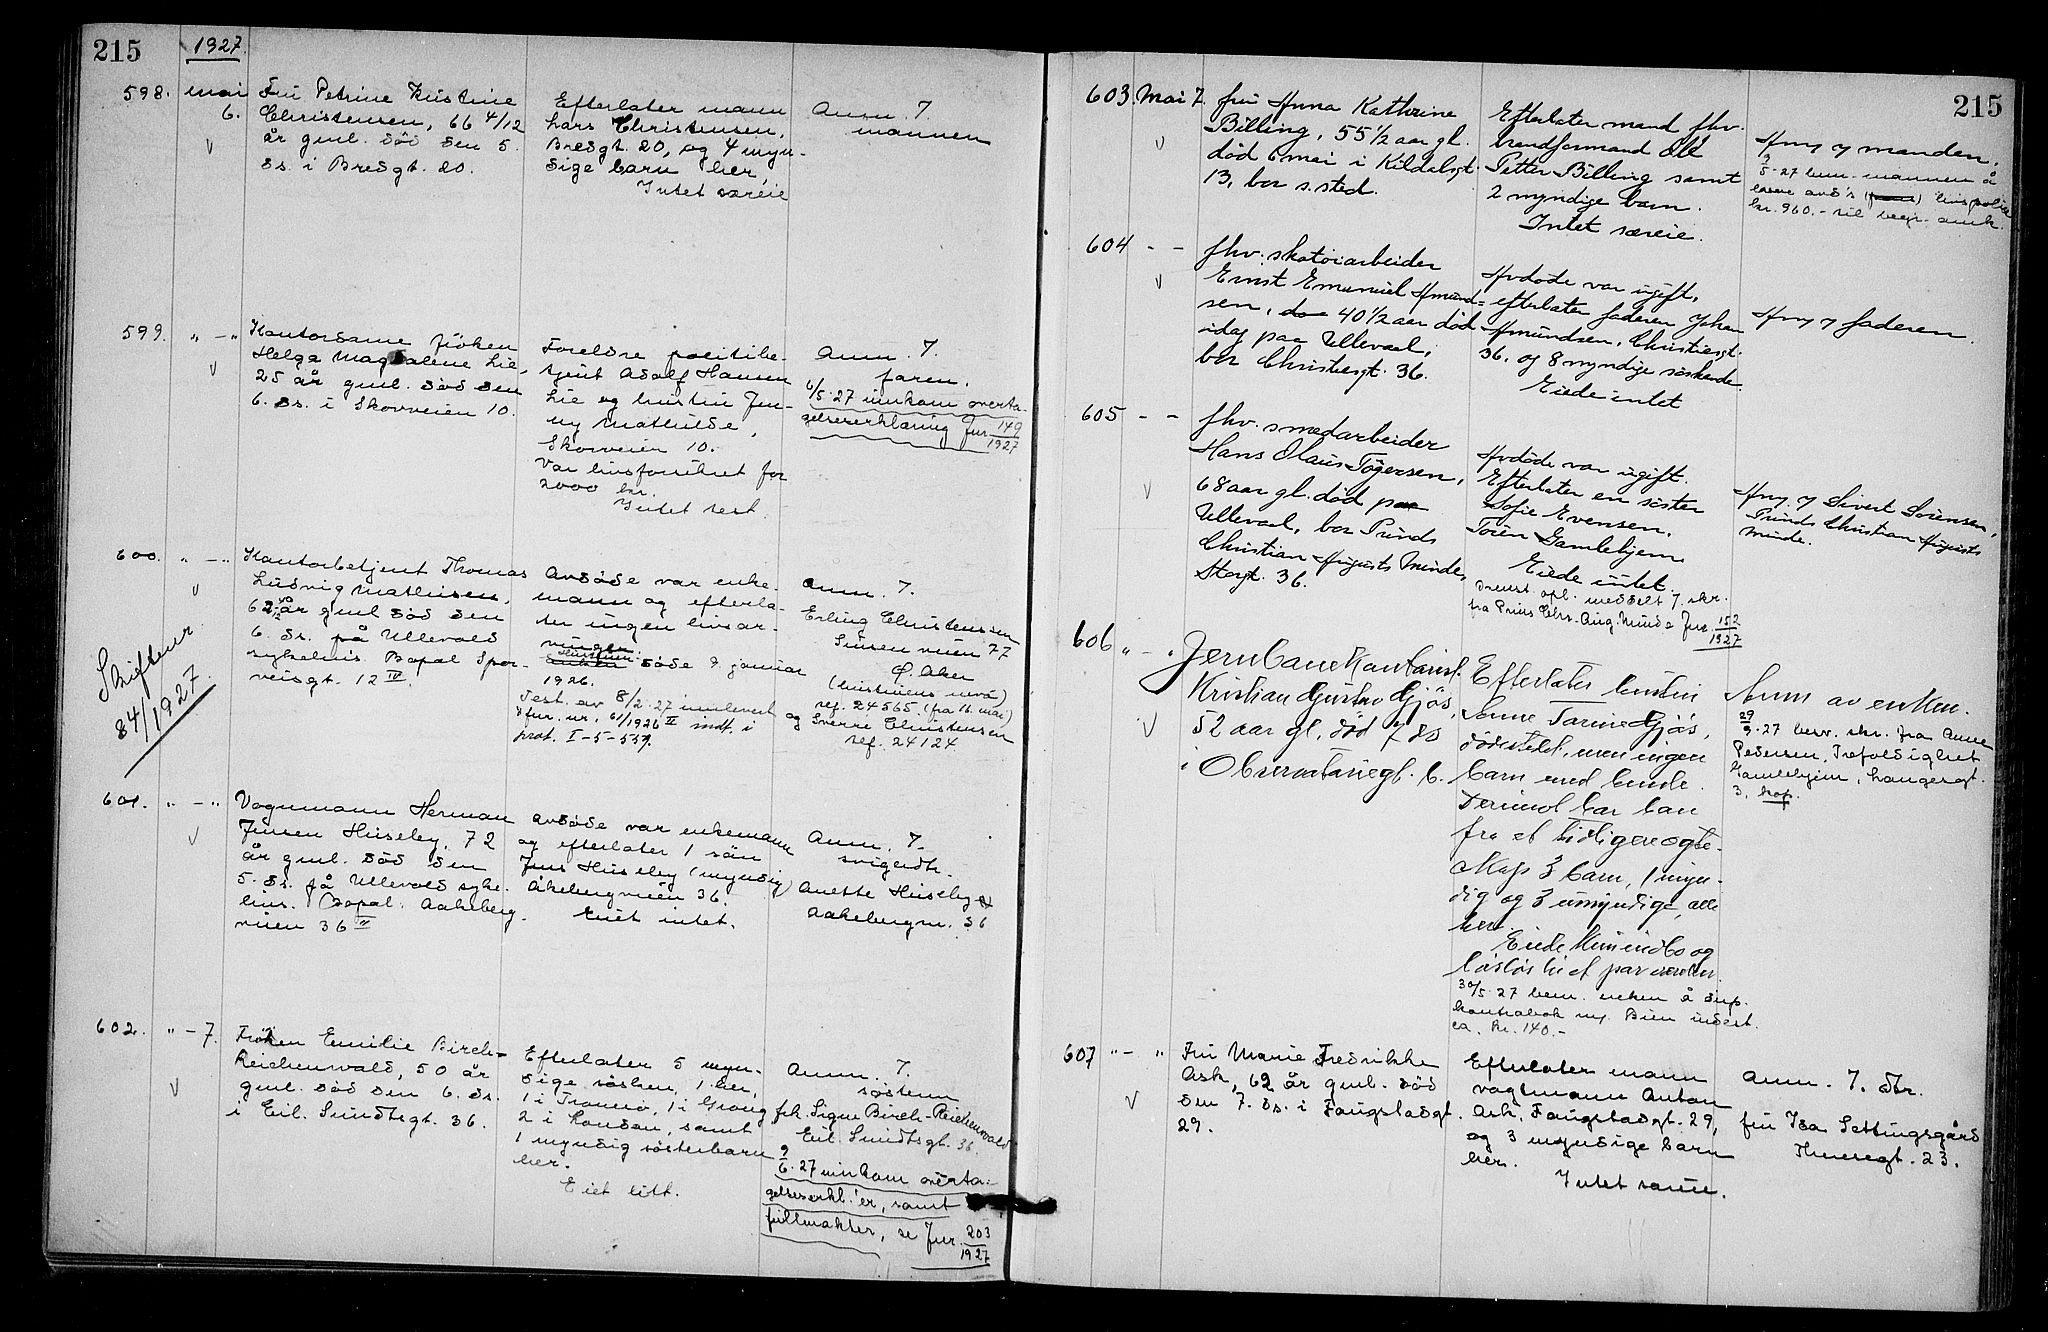 215
1927.
598. mai 6.
Fru Petrine Kristine
Christensen, 66 4/12
år gml. död den 5.
ds. i Bredgt. 20.
Efterlater mann
Lars Christensen,
Bredgt. 20, og 4 myn-
dige barn her,
Intet særeie
Anm. 7.
mannen
599. " - "
Kontordame fröken
Helga Magdalene Lie,
25 år gml. död den
6. ds. i Skovveien 10.
Foreldre politibe-
tjent Adolf Hansen
Lie og hustru Jen-
ny Mathilde,
Skovveien 10.
Var livsforsikret for
2000 kr.
Intet test.
Anm. 7.
faren.
6/5.27 innkom overta-
gelseserklæring Jnr. 149
1927
600. " - "
Kontorbetjent Thomas
Ludvig Mathisen,
62 år gml död den
6. ds. på Ullevold
sykehus. Bopæl Spor-
veisgt. 12 IV.
Avdöde var enke-
mann og efterla-
ter ingen livsar-
vinger
Hustruen döde 9. januar
1926.
Test. av 8/2.27 innlevert
Jnr. nr. 61/1926 II indt. i
prot. I-5-559.
Anm. 7.
Erling Christensen
Sinsen veien 77
Ö. Aker
(hustruens nevö)
ref. 24565. (fra 16. mai)
og Sverre Christensen
ref. 24124
Skiftenr.
84/1927.
601. " - "
Vognmann Herman
Jensen Huseby, 72
år gml. död den
5. ds. på Ullevold syke-
hus. Bopæl. Aakeberg-
veien 36 II
Avdöde var enkemann
og efterlater 1 sön
Jens Huseby (myndig)
Åkebergveien 36.
Eiet intet.
Anm. 7.
svigerdtr.
Anette Huseby
Aakebergvn. 36
602. " - 7.
Fröken Emilie Birch-
Reichenwald, 50 år
gml. död den 6. ds.
i Eil. Sundtsgt. 36.
Efterlater 5 myn-
dige sösken, 1 her,
1 i Tromsö, 1 i Grong
2 i London, samt
1 myndig sösterbarn
her.
Eiet litt.
Anm. 7.
söstern
frk. Signe Birch-Reichenwald
Eil. Sundtsgt. 36.
9/6.27 innkom overta-
gelseserkl.'er, samt
fullmakter, se Jnr. 203
1927
215
603. Mai 7.
fru Anna Kathrine
Billing, 55 1/2 aar gl.
död 6 mai i Kildalsgt
13, bor s. sted.
Efterlater mand fhv.
brandformand Ole
Petter Billing samt
2 myndige barn.
Intet særeie.
Any 7 manden.
3
5.27 bem. mannen å
avd's livspolise
kr. 960.- til begr. omk.
604 - -
fhv. skotöiarbeider
Ernst Emanuel Amund-
sen, 40 1/2 aar död
idag paa Ullevaal,
bor Christiesgt. 36.
Avdöde var ugift,
efterlater faderen Johan
Amundsen, Christiesgt.
36. og 8 myndige söskende.
Eiede intet
Any 7 faderen.
605 - -
fhv. smedarbeider
Hans Olaus Tögersen,
68 aar gl. död paa
Ullevaal, bor Prinds
Christian Augusts Minde,
Storgt. 36.
Avdöde var ugift.
Efterlater en söster
Sofie Evensen,
Töien Gamlehjem
Eiede intet.
opl. meddelt 7. skr.
fra Prins Chrs. Aug. Minde Jnr. 152
1927
Any 7 Sivert Sörensen,
Prinds Christian Augusts
Minde.
606 " - "
Jernbanekontorist
Kristian Gjös,
52 aar gl. död 7 ds
i Observatoriegt. 6.
Efterlater hustru
Anne Gjös,
dödsstedet, men ingen
barn med hende.
Derimot har han
fra et tidligere ægte-
skap 3 barn, 1 myn-
dig og 3 umyndige, alle
her.
Eiede kun indbo og
lösöre
30/5.27 bem. enken å disp.
kontrabok Bien indest.
ca. kr. 140.-
Anm av enken.
29
9.27 besv. skr. fra Anne
Pedersen, Trefoldighet
Gamlehjem, Langesgt.
3.
607 " - "
Fru Marie Fredrikke
Ask, 62 år gml. död
den 7. ds. i Fougstadgt.
29.
Efterlater mann
vagtmann Anton
Ask, Fougstadgt. 29,
og 3 myndige barn
her.
Intet særeie.
Anm. 7. dtr.
fru Isa Settingsgård
Thereses gt. 23.